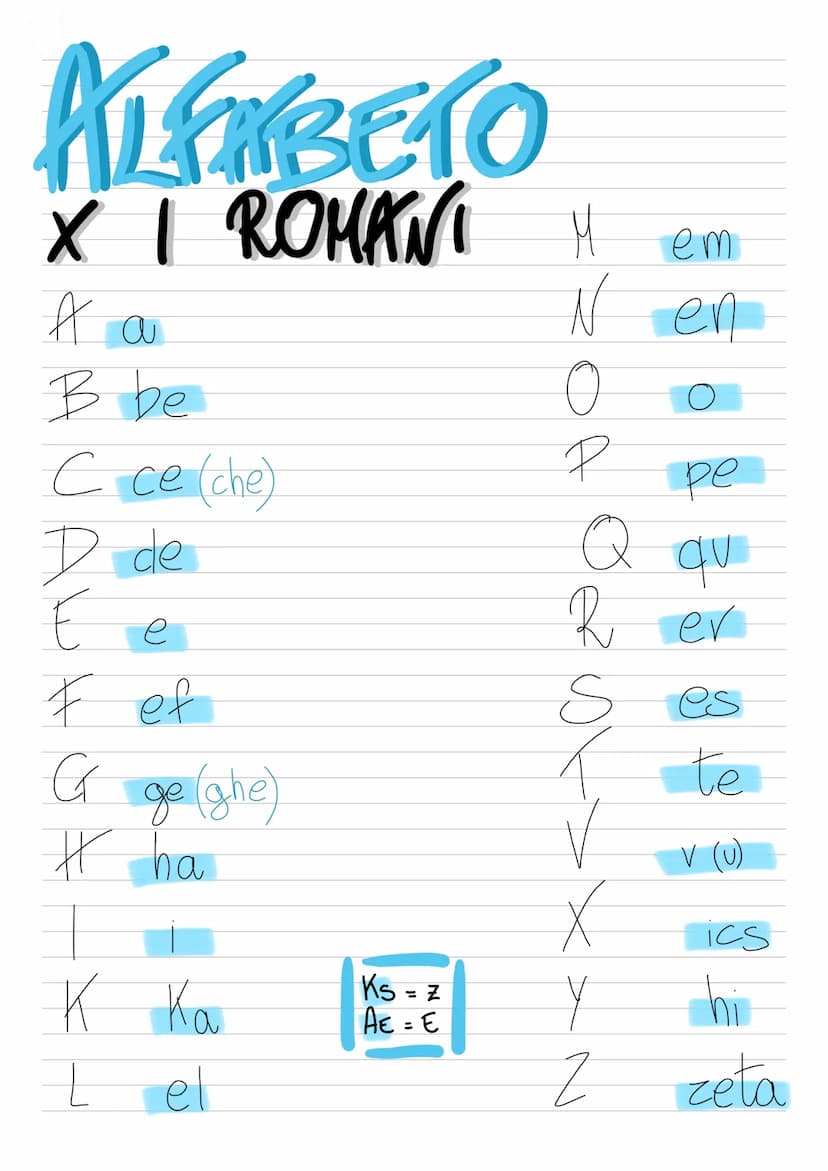 ALFABETO
X I ROMANI
A a
B be
C ce (che)
D de
E e
F ef
G ge (ghe)
H ha
I i
K Ka
L el
Ks = z
AE = E
M em
N en
O o
P pe
Q qu
R er
S es
T te
V v (u)
X ics
Y hi
Z zeta